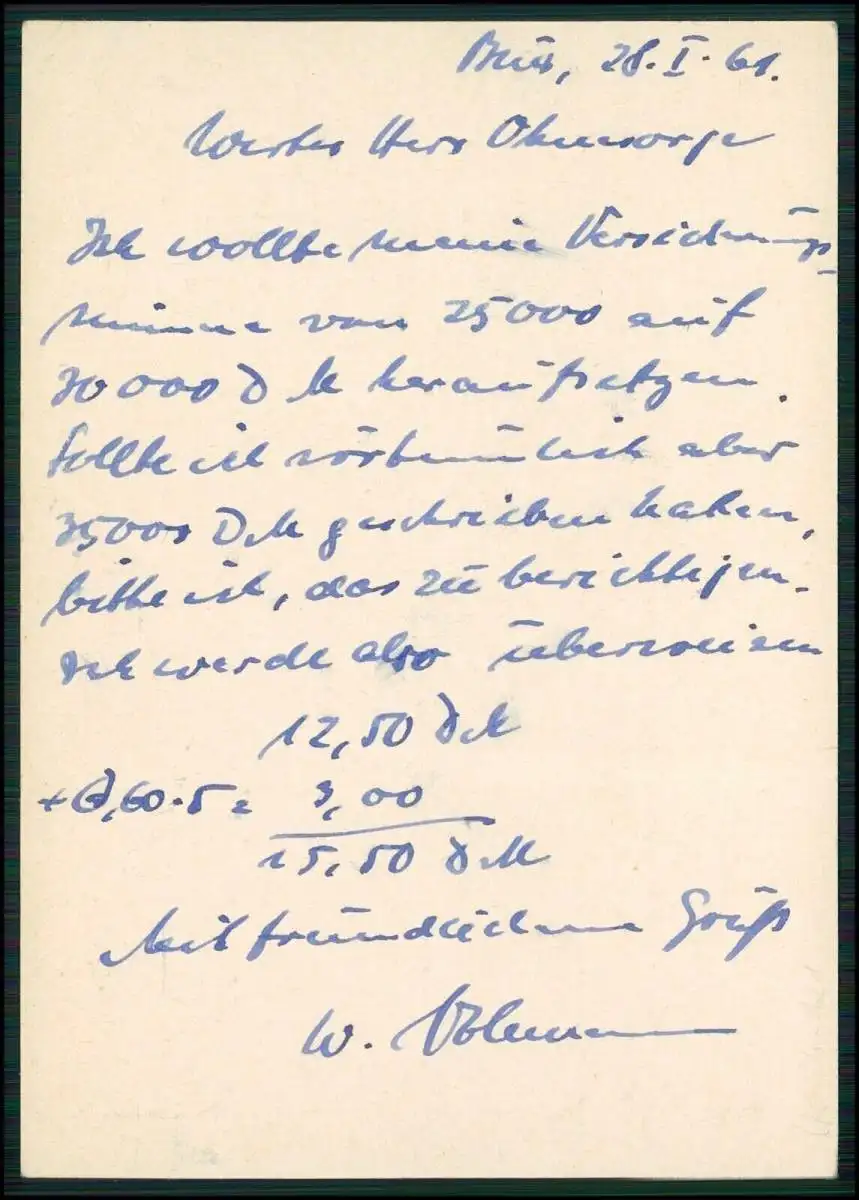 28. I. 61.
Werter Herr Ohnesorge
Ich wollte meine Versicherungs-
summe von 25000 auf
30000 DM heraufsetzen.
Sollte ich irrtümlich aber
35000 DM geschrieben haben,
bitte ich, das zu berichtigen.
Ich werde also überweisen
12,50 DM
+ 0,60 · 5 = 3,00
15,50 DM
Mit freundlichem Gruß
W.